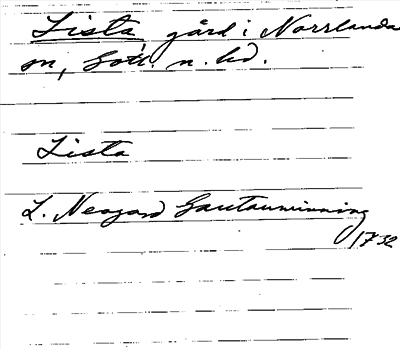 Lista gård i Norrlanda
sn, Gotl. n. hd.
Lista
L. Neogard Gautauminning
1732